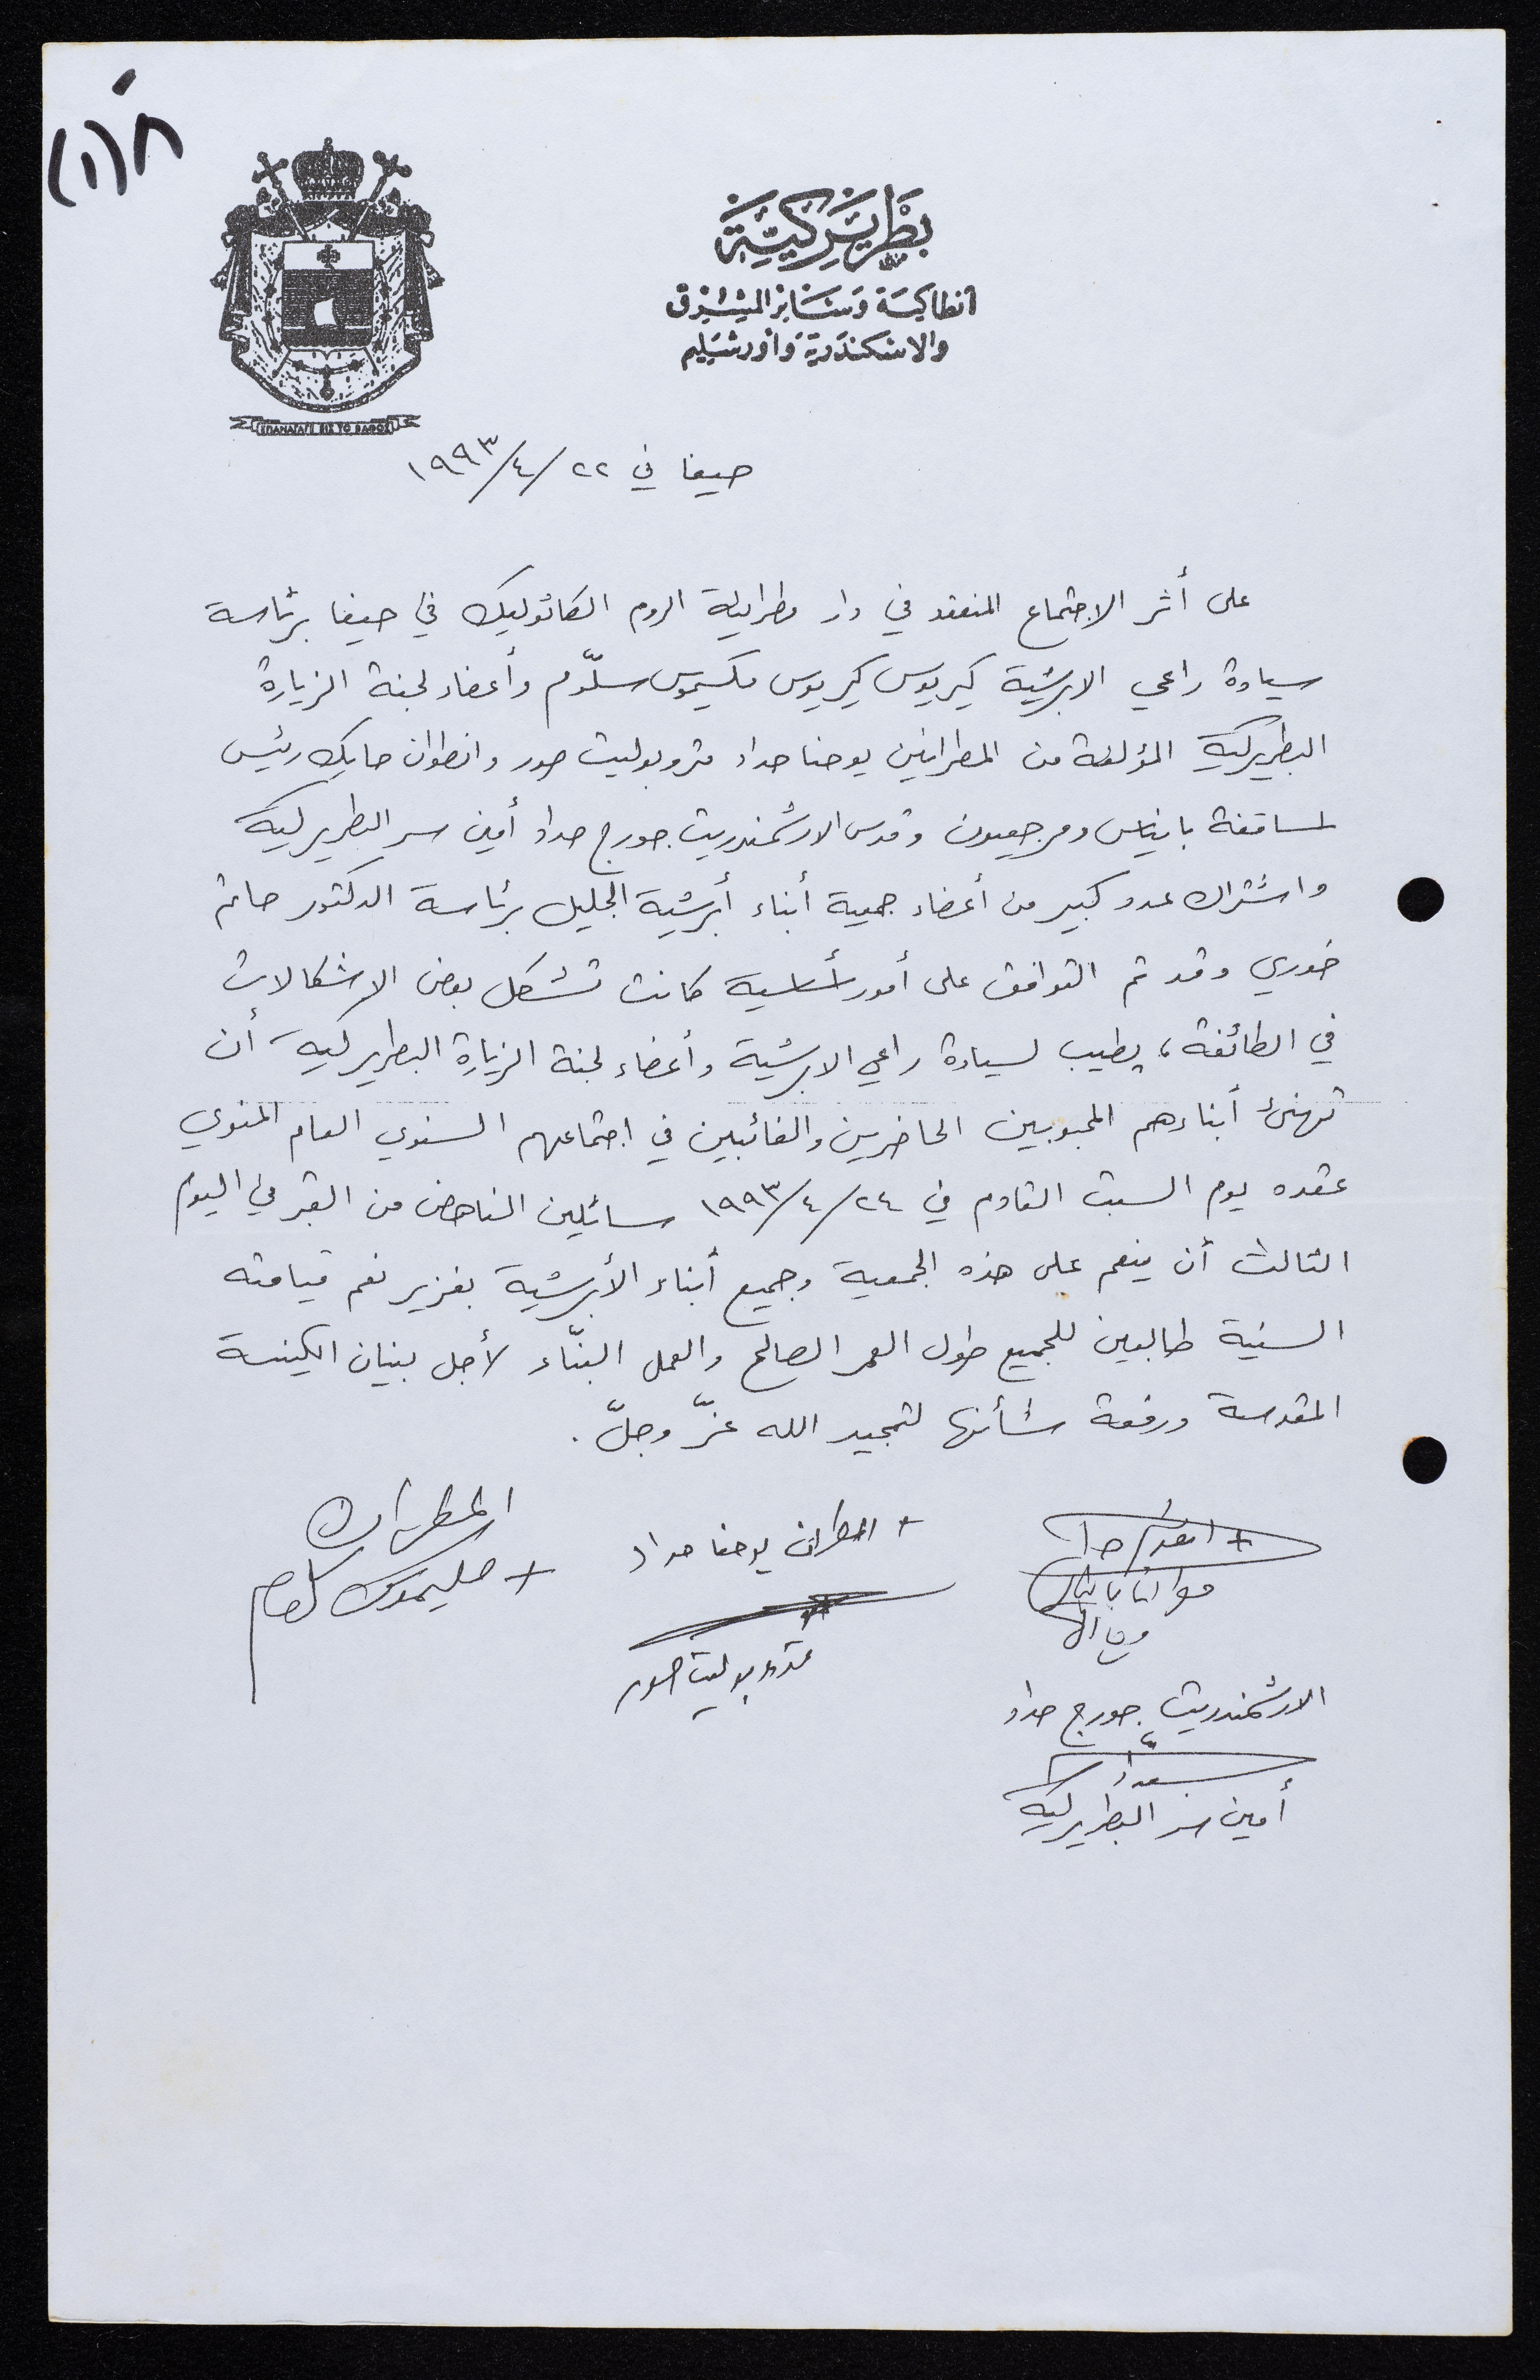 ٨(١)
بطريركية
أنطاكية وسائر المشرق
والاسكندرية وأورشليم
ΕΠΑΝΑΓΑΓΕ ΕΙΣ ΤΟ ΒΑΘΟΣ
حيفا في ٢٢/٤/١٩٩٣
على أثر الاجتماع المنعقد في دار مطرانية الروم الكاثوليك في حيفا برئاسة
سيادة راعي الابرشية كيريوس كيريوس مكسيموس سلّوم وأعضاء لجنة الزيارة
البطريركية المؤلفة من المطرانين يوحنا حداد متروبوليت صور وانطوان حايك رئيس
لساقفة بانياس ومرجعيون وقدس الارشمندريت جورج حداد أمين سر البطريركية
واشتراك عدد كبير من أعضاء جمعية أبناء أبرشية الجليل برئاسة الدكتور حاتم
خوري وقد تم التوافق على أمور أساسية كانت تشكل بعض الإشكالات
في الطائفة، يطيب لسيادة راعي الابرشية وأعضاء لجنة الزيارة البطريركية أن
تهنئ أبناءهم المحبوبين الحاضرين والغائبين في اجتماعهم السنوي العام المنوي
عقده يوم السبت القادم في ٢٤/٤/١٩٩٣ سائلين الناهض من القبر في اليوم
الثالث أن ينعم على هذه الجمعية وجميع أبناء الأبرشية بغزير نعم قيامته
السنية طالبين للجميع طول العمر الصالح والعمل البنّاء لأجل بنيان الكنيسة
المقدسة ورفعة شأنها لتمجيد الله عزّ وجلّ.
المطران
+ مكسيموس سلوم
+ المطران يوحنا حداد
متروبوليت صور
الارشمندريت جورج حداد
أمين سر البطريركية